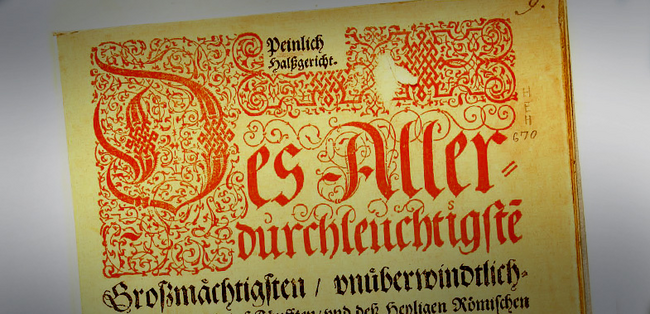 9.
Peinlich
Halßgericht.
Des Aller⸗
durchleuchtigstē
Großmächtigsten / vnüberwindtlich⸗
vnd deß Heyligen Römischen
HEH
670